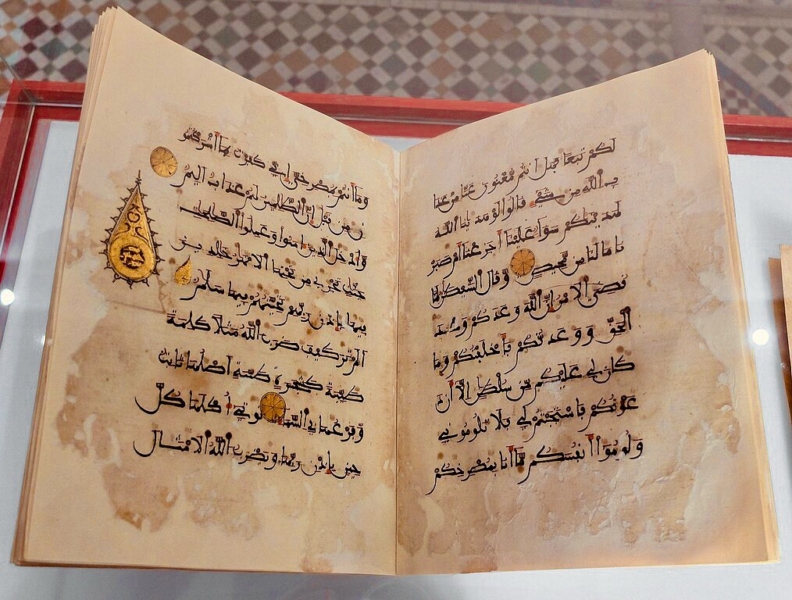 لكم تبعا فهل أنتم مغنون عنا من عذا
ب الله من شيء قالوا لو هدينا الله
لهدينكم سوا علينا أجزعنا أم صبر
نا ما لنا من محيص وقال الشيطن لما
قضي الأمر إن الله وعدكم وعد
الحق ووعدتكم فأخلفتكم وما
كان لي عليكم من سلطن إلا أن د
عوتكم فاستجبتم لي فلا تلوموني
ولوموا أنفسكم ما أنا بمصرخكم
وما أنتم بمصرخي إني كفرت بما أشركتمو
ن من قبل إن الظلمين لهم عذاب أليم
وأدخل الذين امنوا وعملوا الصلحت
جنت تجري من تحتها الأنهر خلدين
فيها بإذن ربهم تحيتهم فيها سلم
ألم تر كيف ضرب الله مثلا كلمة
طيبة كشجرة طيبة أصلها ثابت
وفرعها في السما توتي أكلها كل
حين بإذن ربها ويضرب الله الأمثال